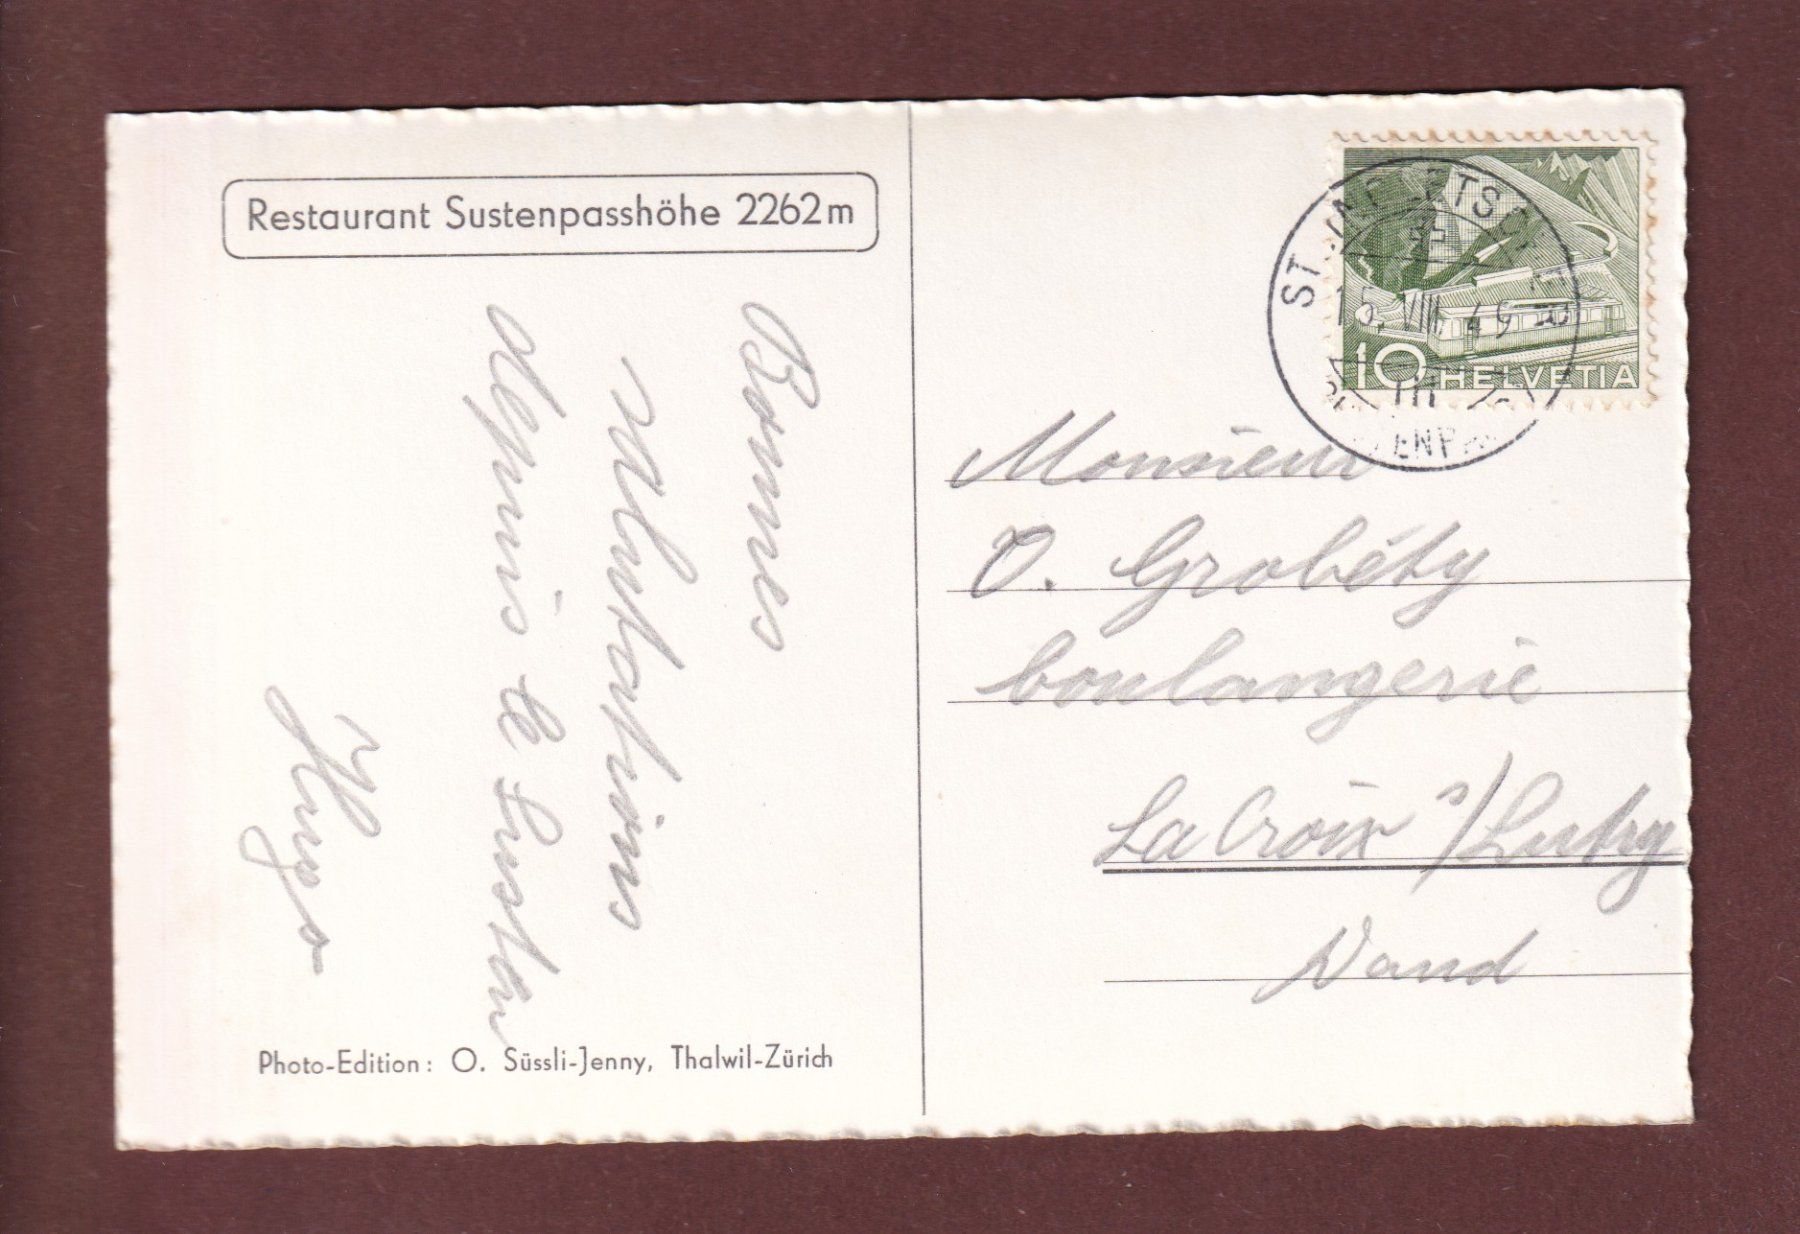 Restaurant Sustenpasshöhe 2262m
Bonnes
salutations
depuis le Susten
Hugo
Photo-Edition: O. Süssli-Jenny, Thalwil-Zürich
15. VIII. 49
10 HELVETIA
Monsieur
O. Grobéty
boulangerie
La Croix s/Lutry
Vaud